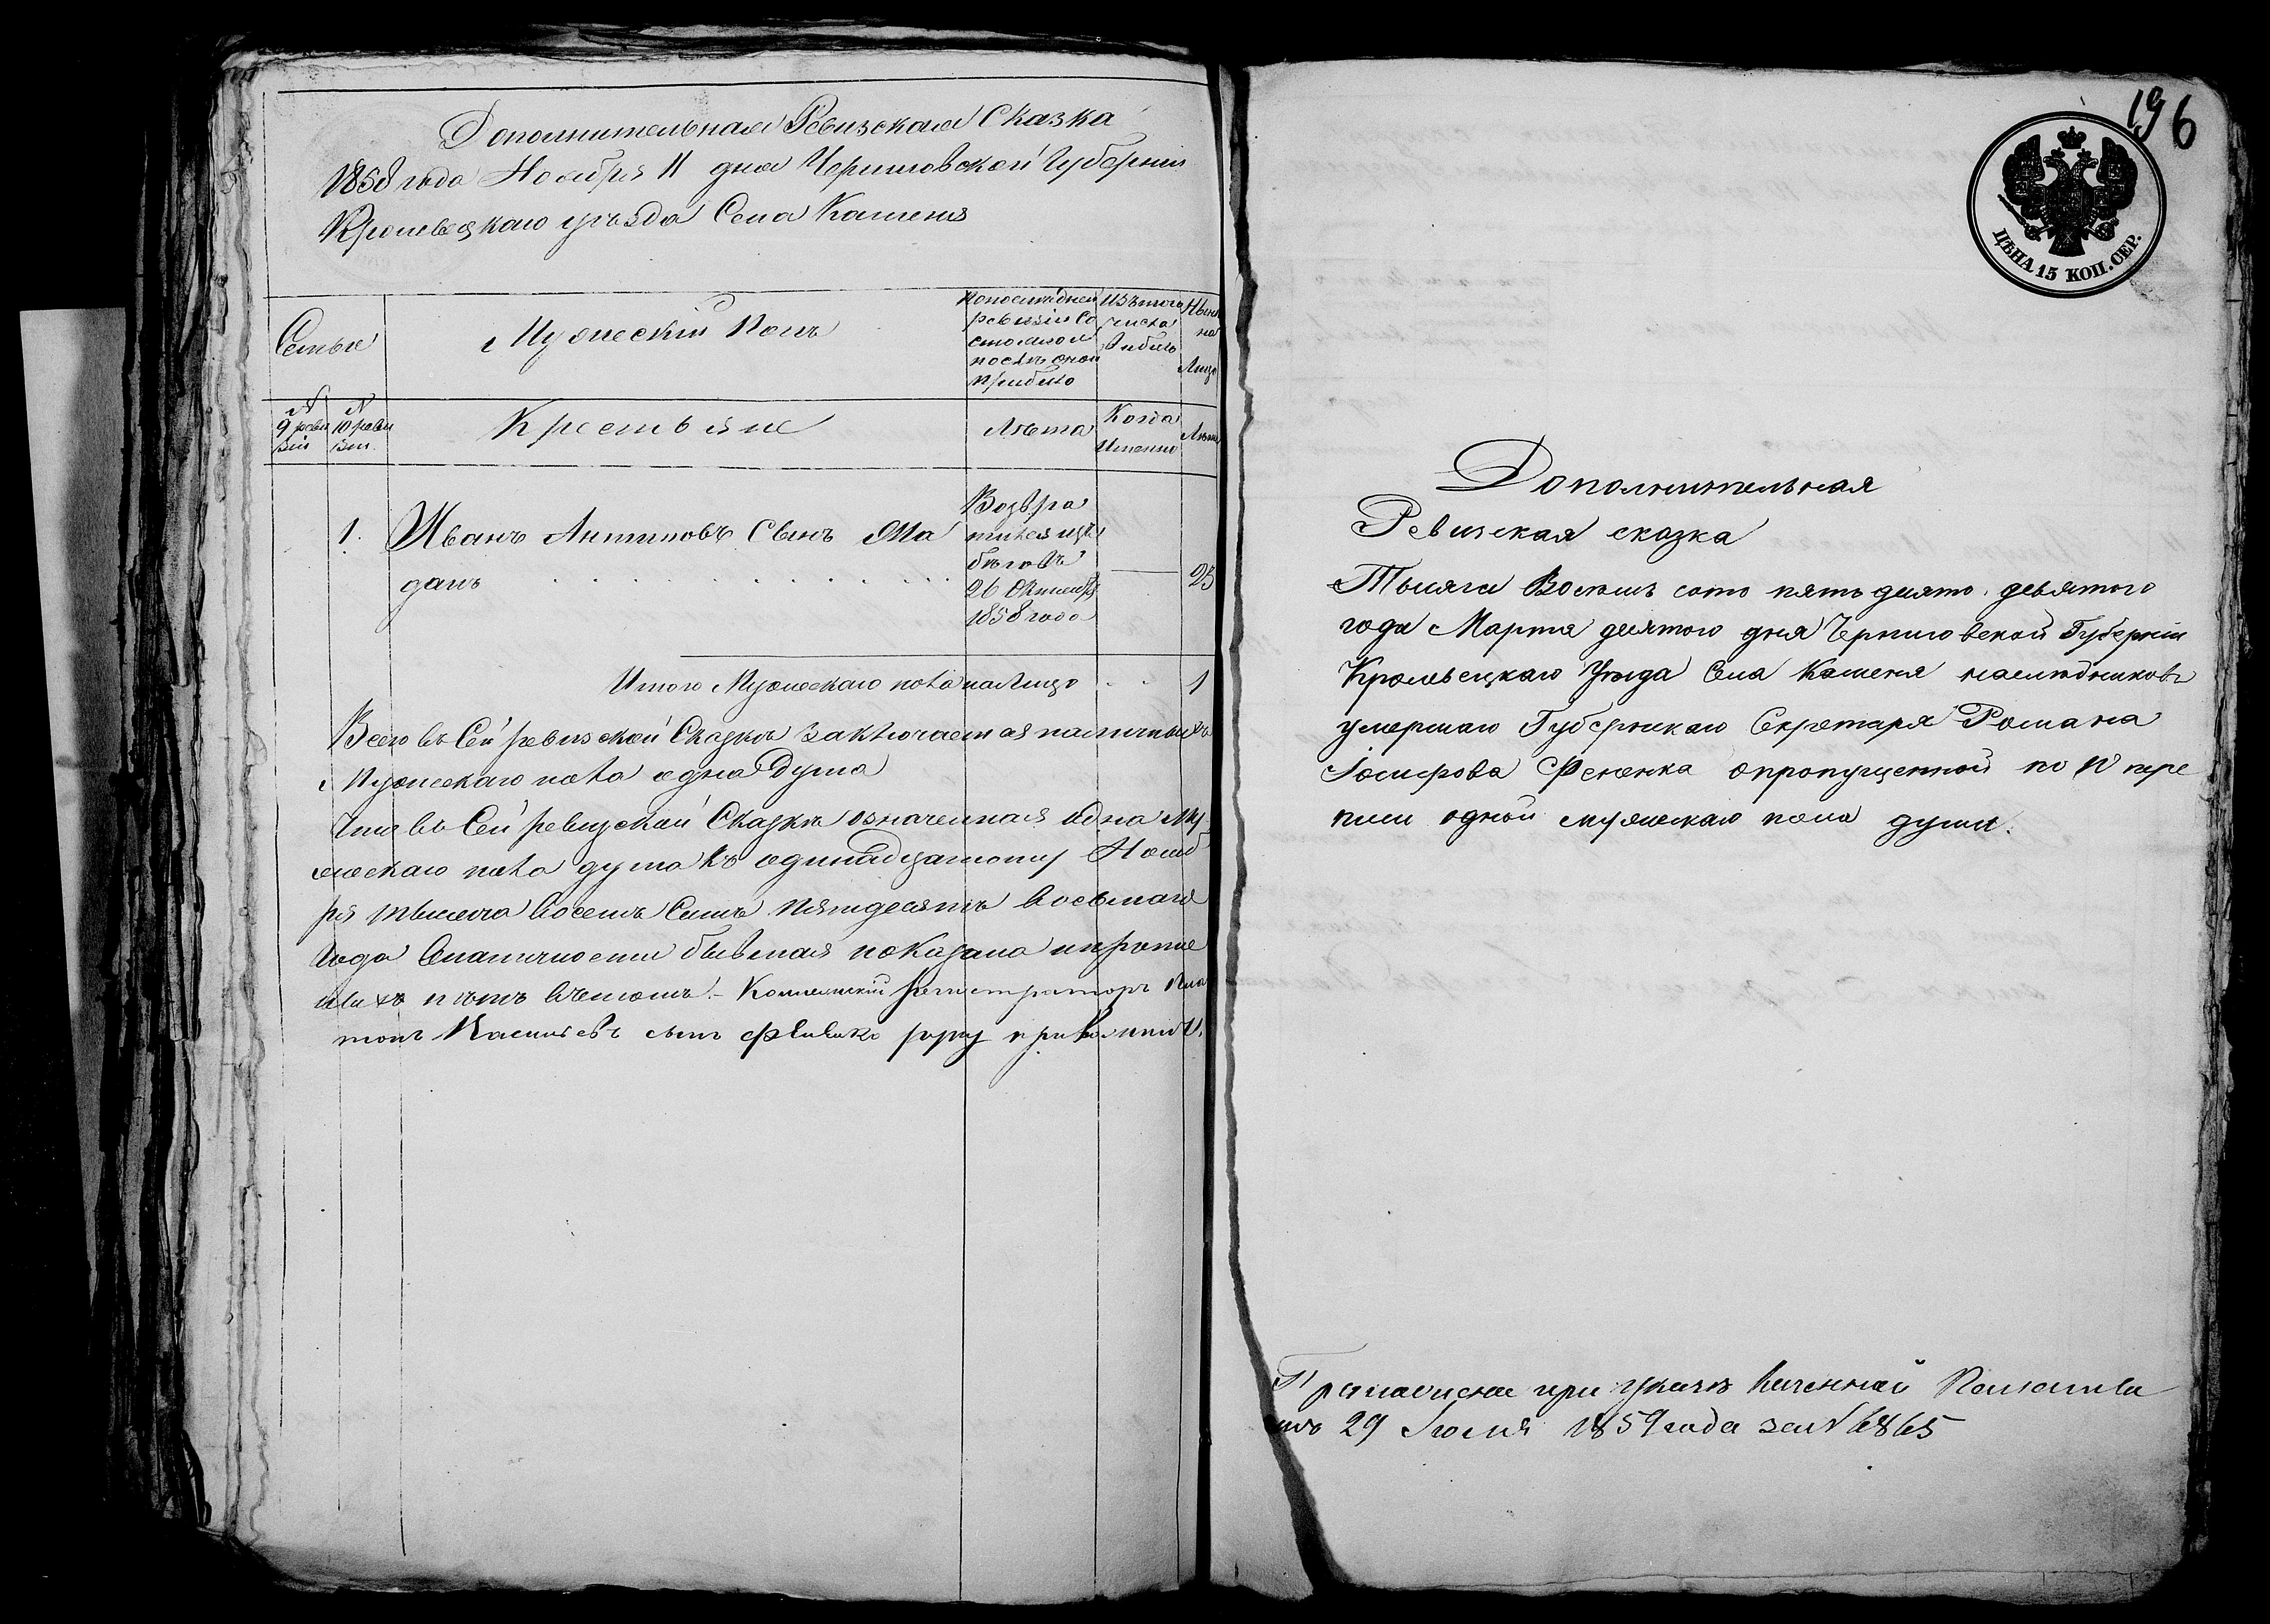 Дополнительная Ревизская Сказка
1858 года Ноября 11 дня Черниговской Губернiи
Кролевецкаго уѣзда Села Каменя
Семьи
Мужескiй Полъ
По последней ревизiи Со стояло и послѣ оной прибыло
Изъ того числа выбыло
Нынѣ на Лицо
N 9 реви зiи
N 10 реви зiи
Крестьяне
Лѣта
Когда Именно
Лѣта
1. Иванъ Антиповъ Сынъ Ма
данъ
Возвра
тился изъ
бѣговъ
26 Октября
1858 года
25
Итого Мужескаго пола на Лицо . . 1
Всего въ Сей ревизской Сказкѣ заключается наличныхъ
Мужескаго пола одна душа
Что въ Сей ревизской Сказкѣ означенная одна му
жескаго пола душа къ одинадцатому Нояб
ря тысяча восемь Сотъ пятдесятъ восьмаго
года въ наличности бывшая показана и
нѣтъ въ томъ. Коллежскiй регистраторъ Пла
тонъ сынъ руку приложилъ.
196
ЦѢНА 15 КОП. СЕР.
Дополнительная
Ревизская сказка
Тысяча Восемь сотъ пятьдесятъ девятого
года Марта десятого дня Черниговской Губернiи
Кролевецкаго Уѣзда Села Каменя наслѣдниковъ
умершаго Губернскаго Секретаря Романа
Iосифова Фененка о пропущенной по 10 пере
писи одной мужескаго пола души.
Прислана при указѣ Казенной Палаты
отъ 29 Iюля 1859 года за N 6865